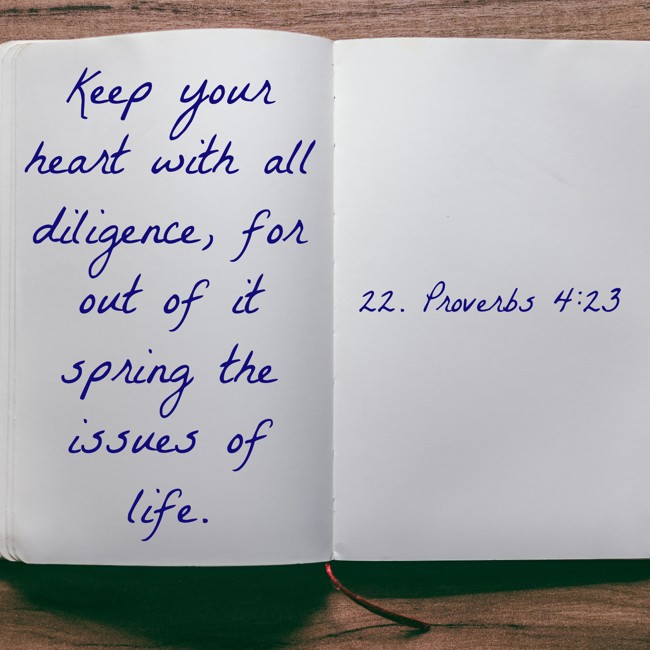 Keep your
heart with all
diligence, for
out of it
spring the
issues of
life.
22. Proverbs 4:23